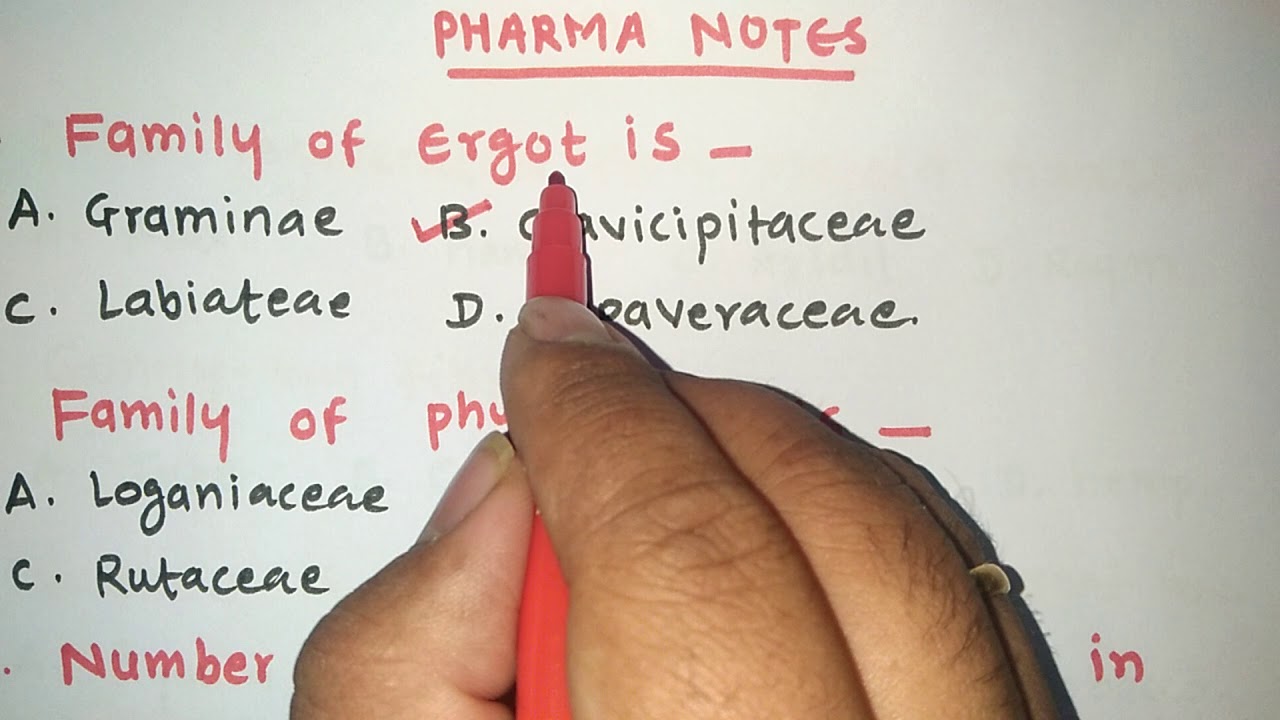 PHARMA NOTES
Family of Ergot is —
A. Graminae B. Clavicipitaceae
C. Labiateae D.
Family of —
A. Loganiaceae
C. Rutaceae
Number in